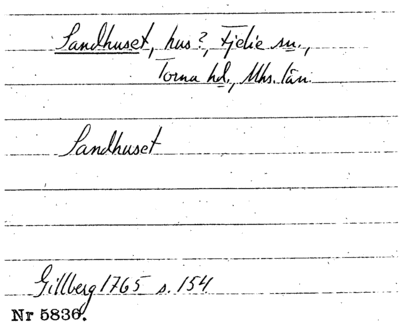 Sandhuset, hus?, Fjelie sn.,
Torna hd., Mhs. län
Sandhuset
Gillberg 1765 s. 154
Nr 5836.